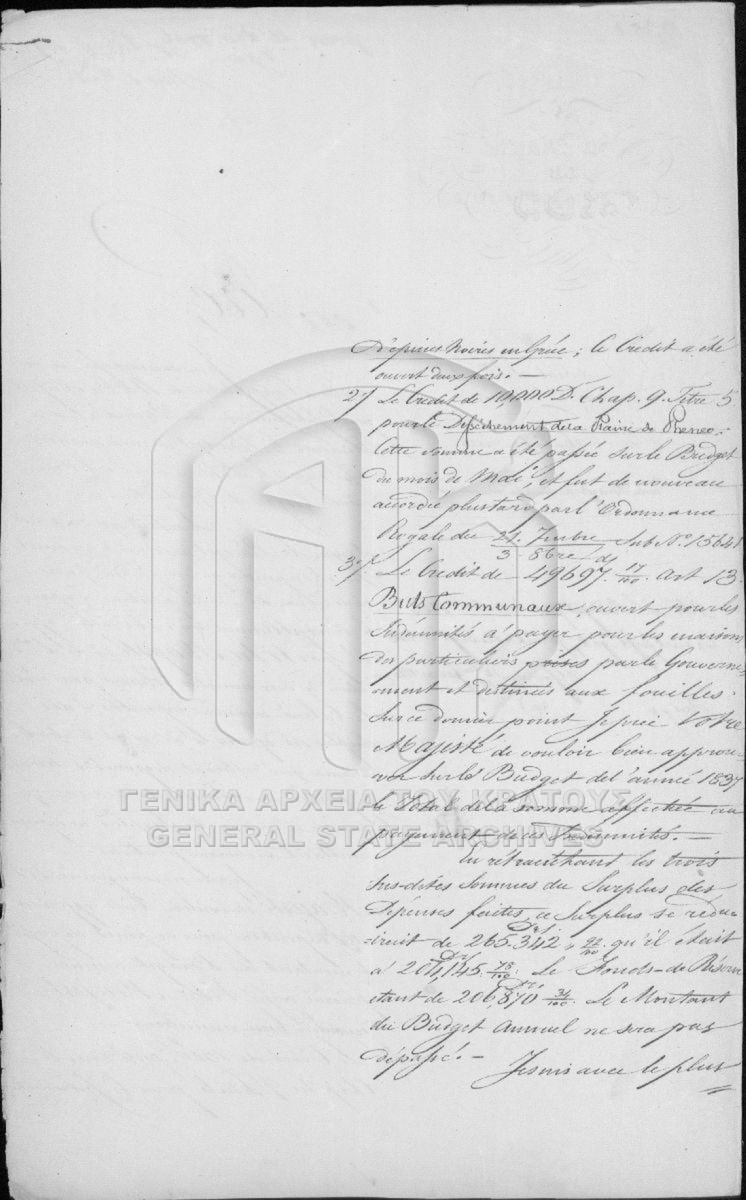 d'épices Noires en Grèce; le Crédit a été
ouvert deux fois. —
2/ Le Crédit de 10,000 D. Chap. 9. Titre 5
pour le Desséchement de la Plaine de Pheneo.
Cette somme a été passée sur le Budget
du mois de Mai, et fut de nouveau
accordée plus tard par l'Ordonnance
Royale du 21. 7mbre / 3 8bre Sub No. 15641
3/. Le Crédit de 49697. 17/100. art 13.
Buts Communaux, ouvert pour les
Indemnités à payer pour les maisons
des particuliers prises par le Gouverne-
ment et destinées aux fouilles.
Sur ce dernier point je prie Votre
Majesté de vouloir bien approu-
ver sur le Budget de l'année 1837
le Total de la somme affectée au
payement de ces Indemnités. —
En rétranchant les trois
sus-dites sommes du Surplus des
Dépenses faites, ce Surplus se rédui-
roit de 265.342, 92/100 qu'il était
à 204,145. 75/100. Le Fonds de Réserve
étant de 206,870 34/100. Le Montant
du Budget annuel ne sera pas
dépassé. —
Je suis avec le plus
ΓΕΝΙΚΑ ΑΡΧΕΙΑ ΤΟΥ ΚΡΑΤΟΥΣ
GENERAL STATE ARCHIVES